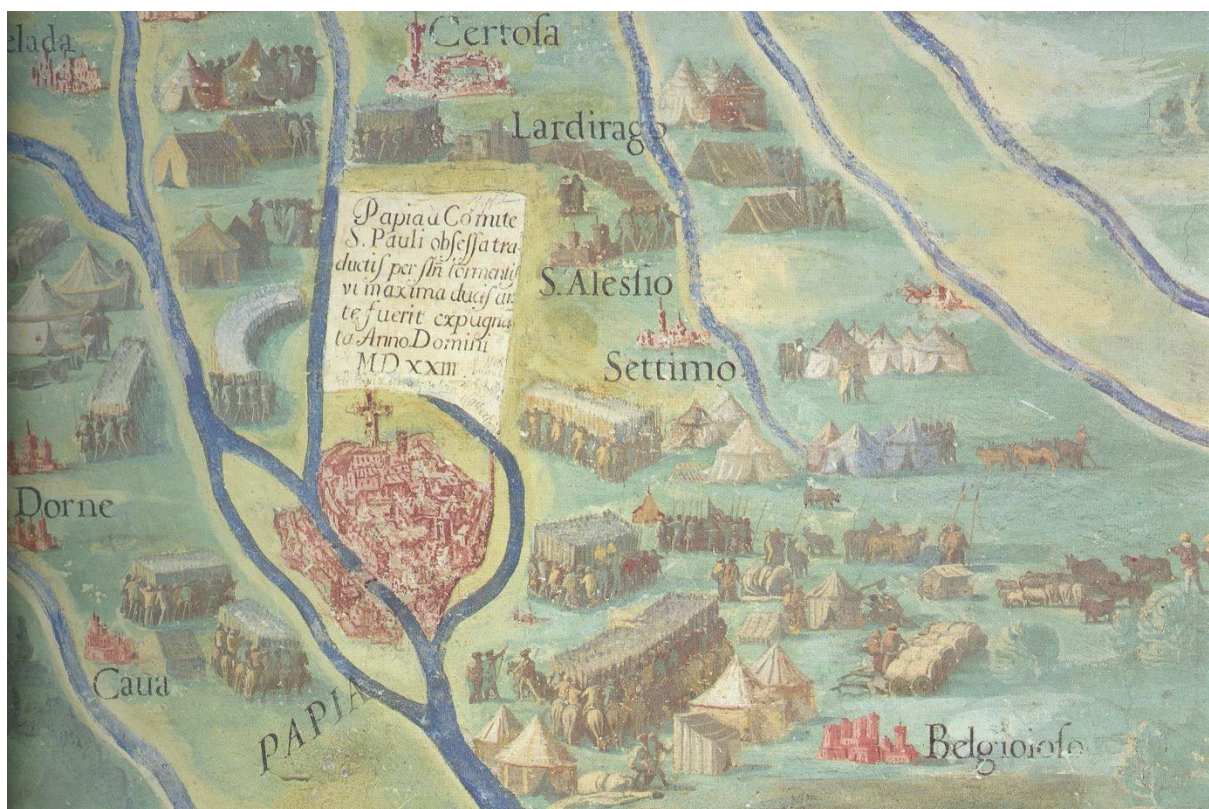 elada
Certosa
Lardirago
Papia a Comite
S. Pauli obsessa tra
ductis per tormentis
vi maxima ducis ar
te fuerit expugna
ta Anno Domini
MDXXIII
S. Alessio
Settimo
Dorne
Caua
PAPIA
Belgioioso